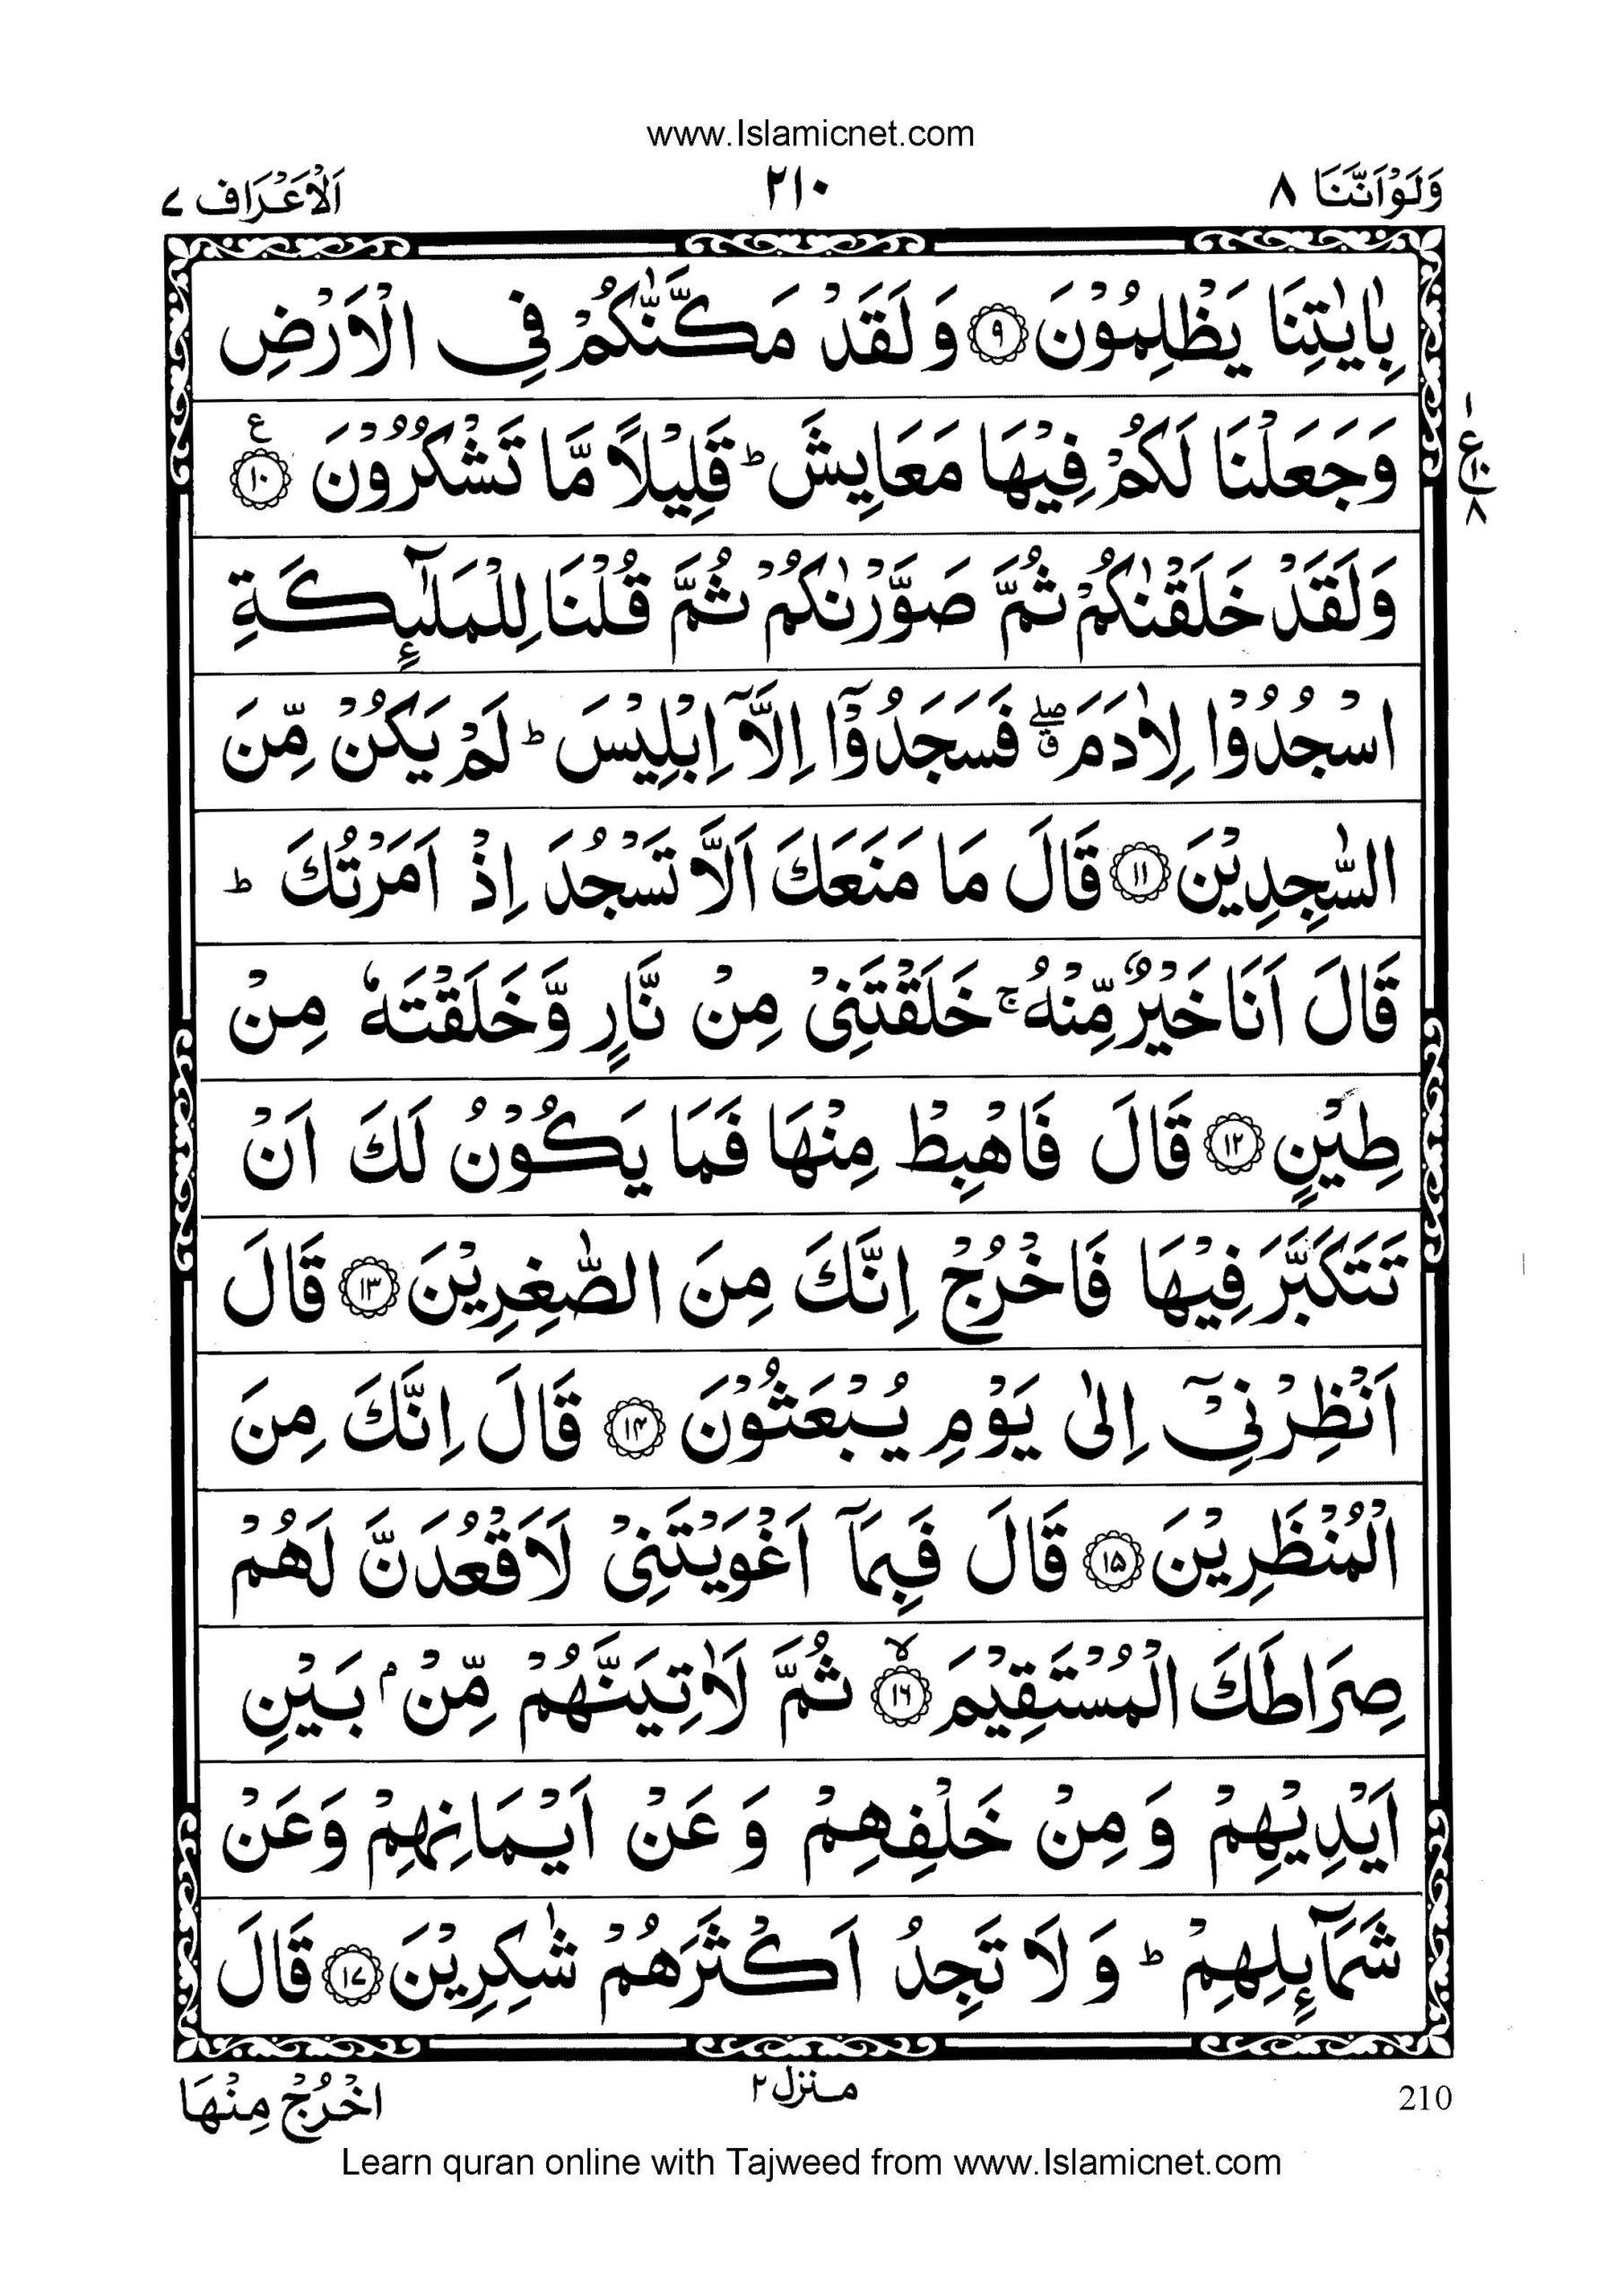 www.Islamicnet.com
وَلَوْاَنَّنَا ٨ ٢١٠ اَلْاَعْرَاف ٧
بِاٰيٰتِنَا يَظْلِمُوْنَ ۝٩ وَ لَقَدْ مَكَّنّٰكُمْ فِي الْاَرْضِ
وَجَعَلْنَا لَكُمْ فِيْهَا مَعَايِشَ ؕ قَلِيْلًا مَّا تَشْكُرُوْنَ ۝١٠ ع
وَلَقَدْ خَلَقْنٰكُمْ ثُمَّ صَوَّرْنٰكُمْ ثُمَّ قُلْنَا لِلْمَلٰٓئِكَةِ
اسْجُدُوْا لِاٰدَمَ ۖۗ فَسَجَدُوْۤا اِلَّاۤ اِبْلِيْسَ ؕ لَمْ يَكُنْ مِّنَ
السّٰجِدِيْنَ ۝١١ قَالَ مَا مَنَعَكَ اَلَّا تَسْجُدَ اِذْ اَمَرْتُكَ ؕ
قَالَ اَنَا خَيْرٌ مِّنْهُ ۚ خَلَقْتَنِيْ مِنْ نَّارٍ وَّخَلَقْتَهٗ مِنْ
طِيْنٍ ۝١٢ قَالَ فَاهْبِطْ مِنْهَا فَمَا يَكُوْنُ لَكَ اَنْ
تَتَكَبَّرَ فِيْهَا فَاخْرُجْ اِنَّكَ مِنَ الصّٰغِرِيْنَ ۝١٣ قَالَ
اَنْظِرْنِيْۤ اِلٰى يَوْمِ يُبْعَثُوْنَ ۝١٤ قَالَ اِنَّكَ مِنَ
الْمُنْظَرِيْنَ ۝١٥ قَالَ فَبِمَاۤ اَغْوَيْتَنِيْ لَاَقْعُدَنَّ لَهُمْ
صِرَاطَكَ الْمُسْتَقِيْمَ ۝١٦ ۙ ثُمَّ لَاٰتِيَنَّهُمْ مِّنْۢ بَيْنِ
اَيْدِيْهِمْ وَ مِنْ خَلْفِهِمْ وَ عَنْ اَيْمَانِهِمْ وَعَنْ
شَمَآئِلِهِمْ ؕ وَ لَا تَجِدُ اَكْثَرَهُمْ شٰكِرِيْنَ ۝١٧ قَالَ
١
ع ١٠
٨
210 مـنزل ٢ اخْرُجْ مِنْهَا
Learn quran online with Tajweed from www.Islamicnet.com